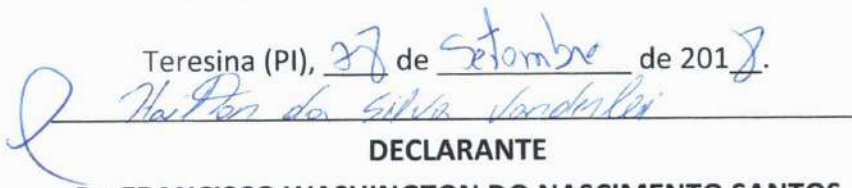 Teresina (PI), 28 de Setembro de 2018.
da Silva Vanderlei
DECLARANTE
FRANCISCO WASHINGTON DO NASCIMENTO SANTOS